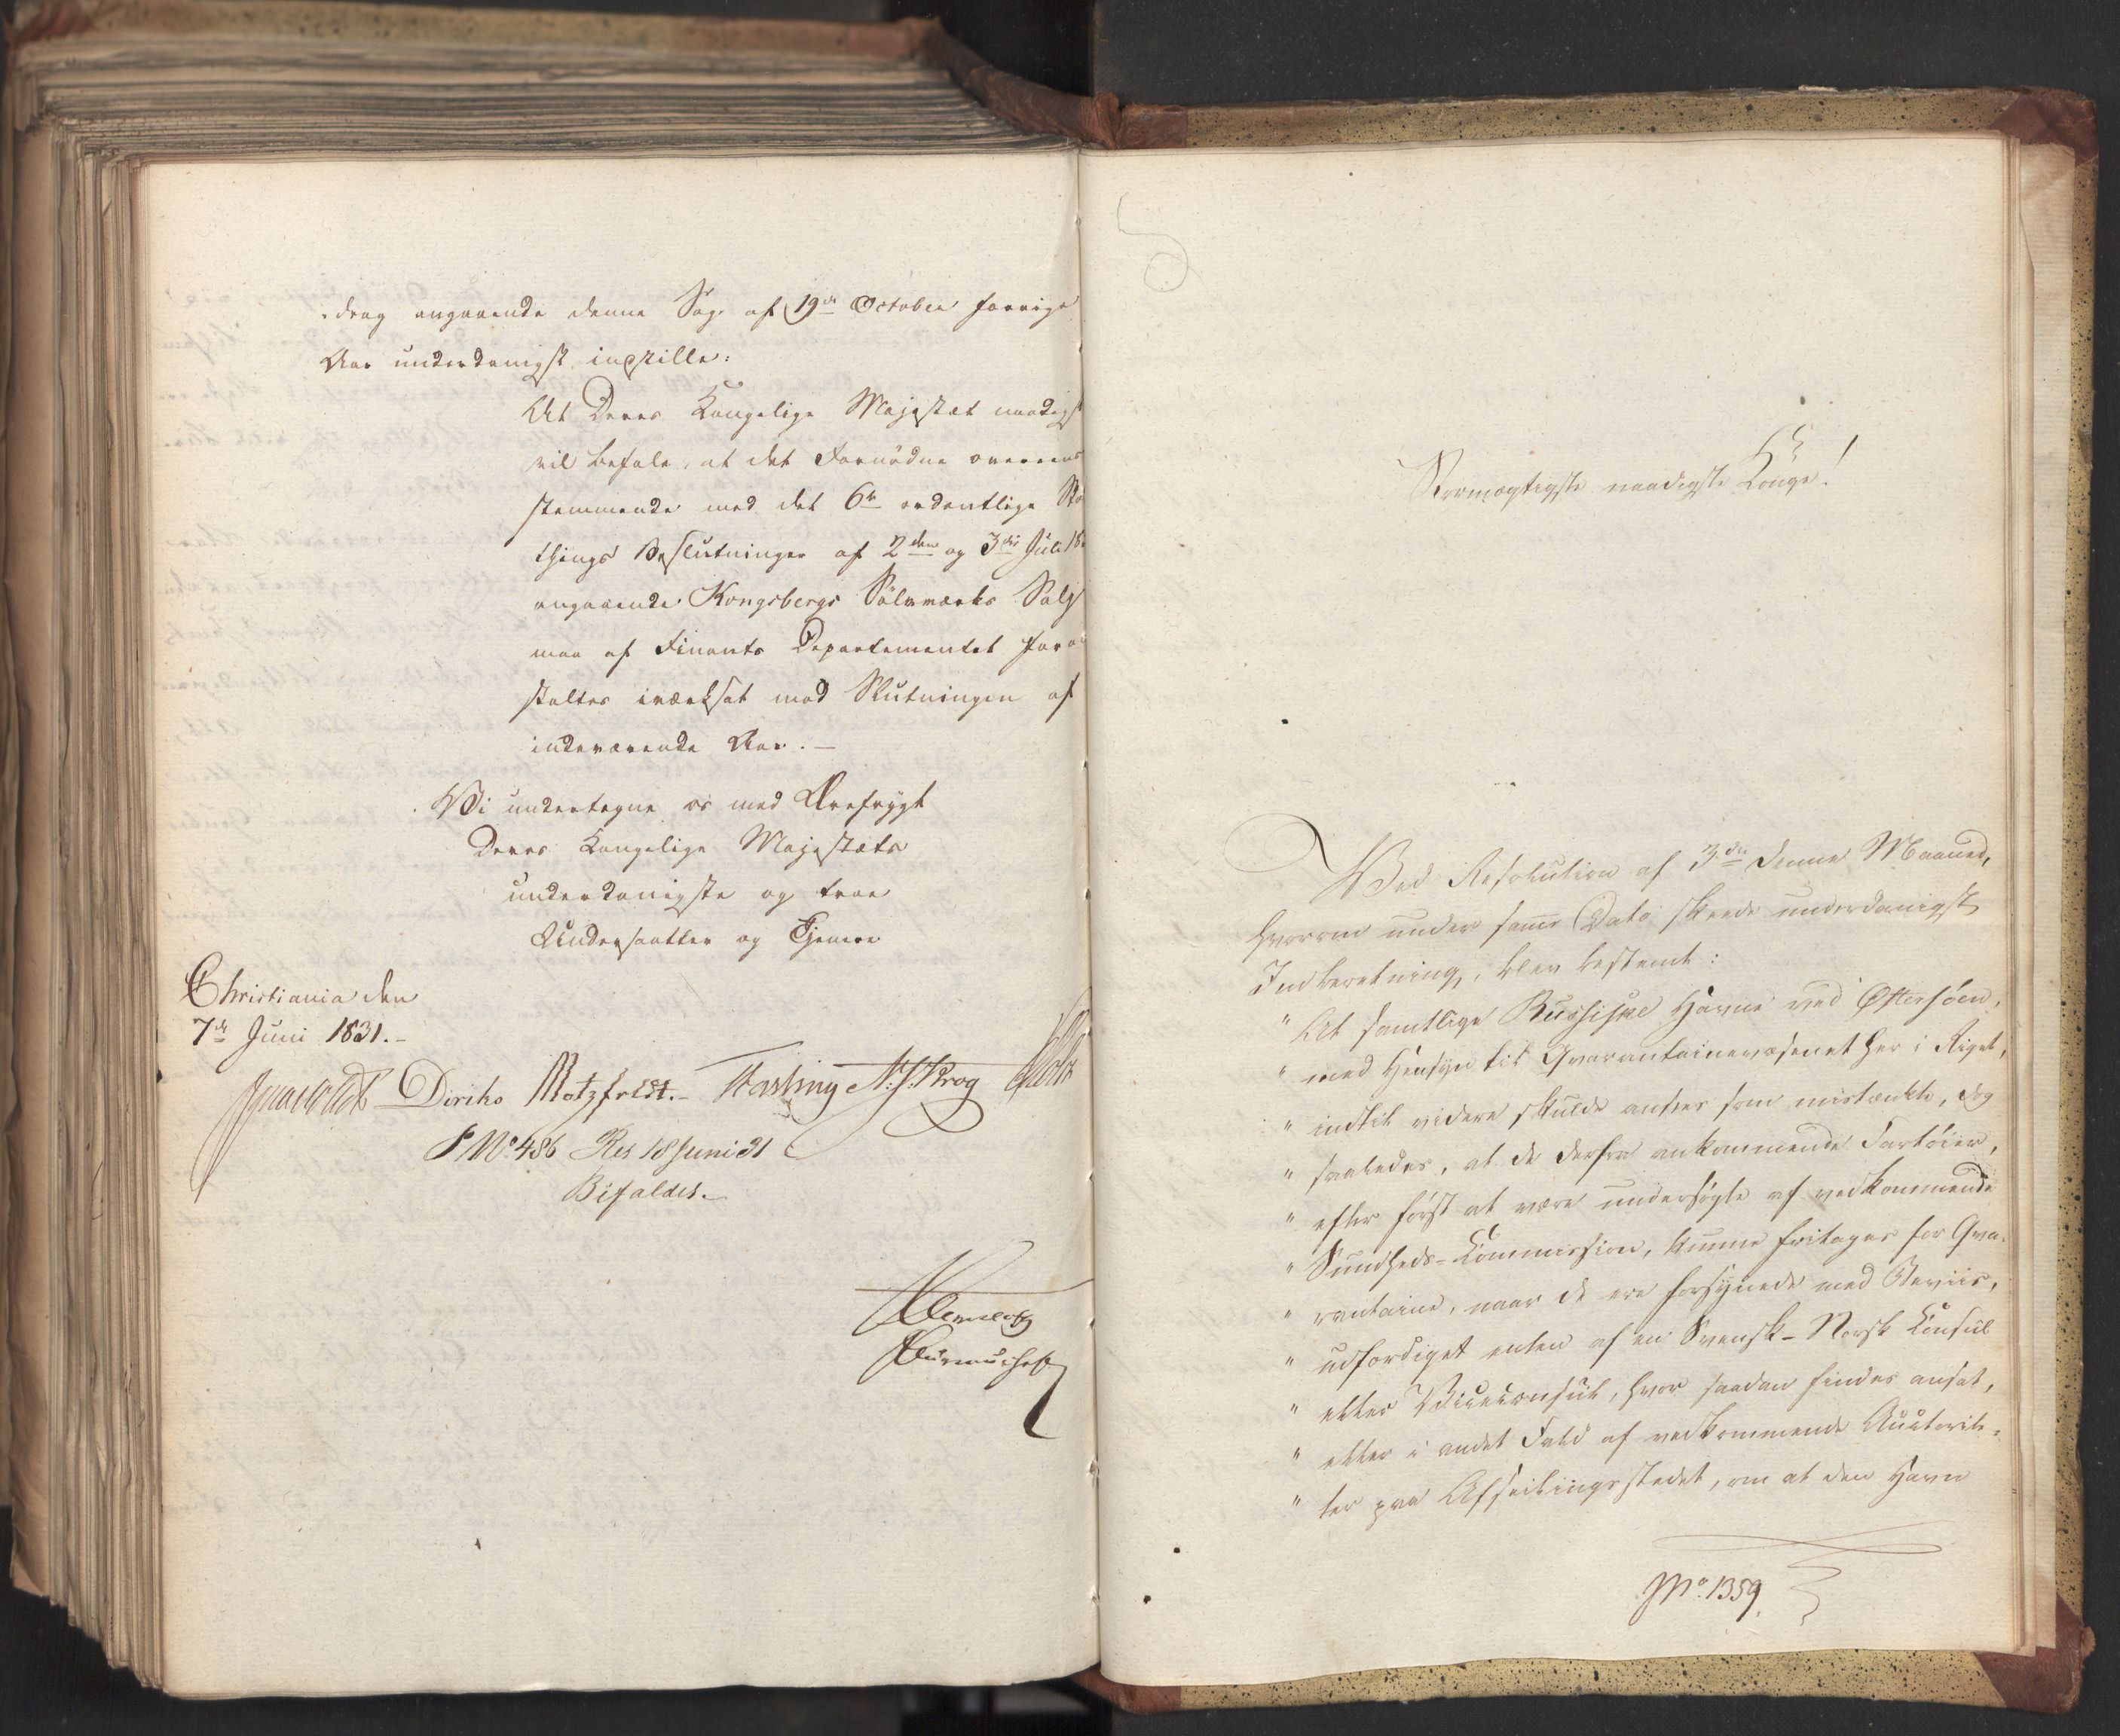 -drag angaaende denne Sag af 19de October forrige
Aar underdanigst indstille:
At Deres Kongelige Majestæt naadigst
vil befale, at det Fornødne overeens
stemmende med det 6te ordentlige Stor
things Beslutninger af 2den og 3die Juli 18
angaaende Kongsbergs Sølvværks Salg
maa af Finants Departementet foran
staltes iværksat med Slutningen af
indeværende Aar. —
Vi undertegne os med Ærefrygt
Deres Kongelige Majestæts
underdanigste og troe
Undersaatter og Tjenere
Christiania den
7de Juni 1831. -
Diriks Motzfeldt. - Fasting N: J: Krog
P No 486 Res 18 Juni 31
Bifaldes. -
Stormægtigste naadigste Konge!
Ved Resolution af 3die denne Maaned,
hvorom under samme Dato skeede underdanigst
Indberetning, blev bestemt:
" At samtlige Russiske Havne ved Østersøen,
" med Hensyn til Qvarantainevæsenet her i Riget,
" indtil videre skulde ansees som mistænkte, dog
" saaledes, at de derfra ankommende Fartøier,
" efter først at være undersøgte af vedkommende
" Sundheds-Commission, kunne fritages for Qva-
" rantaine, naar de ere forsynede med Beviis,
" udfærdiget enten af en Svensk-Norsk Consul
" eller Viceconsul, hvor saadan findes ansat,
" eller i andet Fald af vedkommende Auctorite-
" ter paa Afseilingsstedet, om at den Havn
No. 1359.